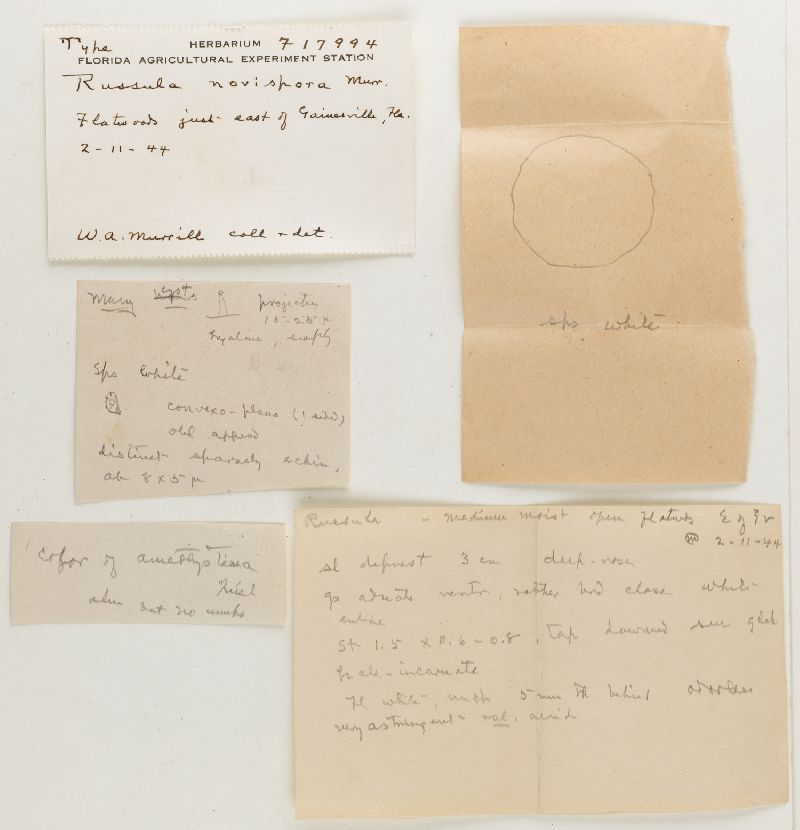 Type HERBARIUM F17994
FLORIDA AGRICULTURAL EXPERIMENT STATION
Russula novispora Murr.
Flatwoods just east of Gainesville, Fla.
2-11-44
W.A. Murrill coll & det.
sps white
Many cysts projecting
15-25 µ
hyaline, empty
Sps White
convexo-plano (1 sided)
obl apprd
distinct sparsely echin,
ab 8 x 5 µ
Color of amethystina
Quel
but no
Russula - medium moist open flatwds E of Gv
2-11-44
sl deprest 3 cm deep-rosy
gs adnate ventr, rather brd close white
entire
St 1.5 x 0.6-0.8, tap downwd sm glab
-incarnate
Fl white, 5 mm th behind odorless
very astringent acrid